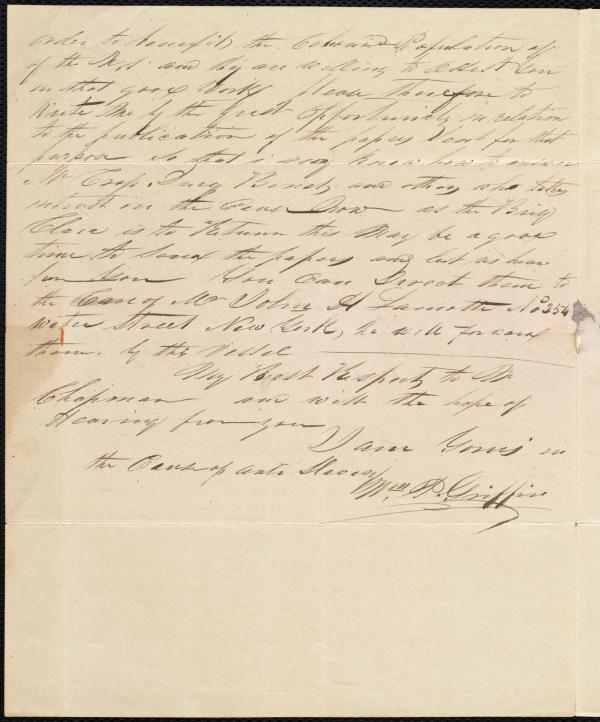 order to benefit the Coloured Population of
of the U.S. and they are willing to assist you
in that good work please therefore to
write me by the first opportunity in relation
to the publication of the papers sent for that
purpose so that i may know how to answer
Mr and others who takes
interest in the Cause Now as the Brig
Clara is to Return this May be a good
time to send the papers and let us hear
from you You can Direct them to
the Care of Mr John H Lamotte No 354
Water Street New York, he will forward
them, by this Vessel
My Best Respects to Mr
Chapman and with the hope of
Hearing from you
I am Yours in
the Cause of anti Slavery
Wm. P. Griffin